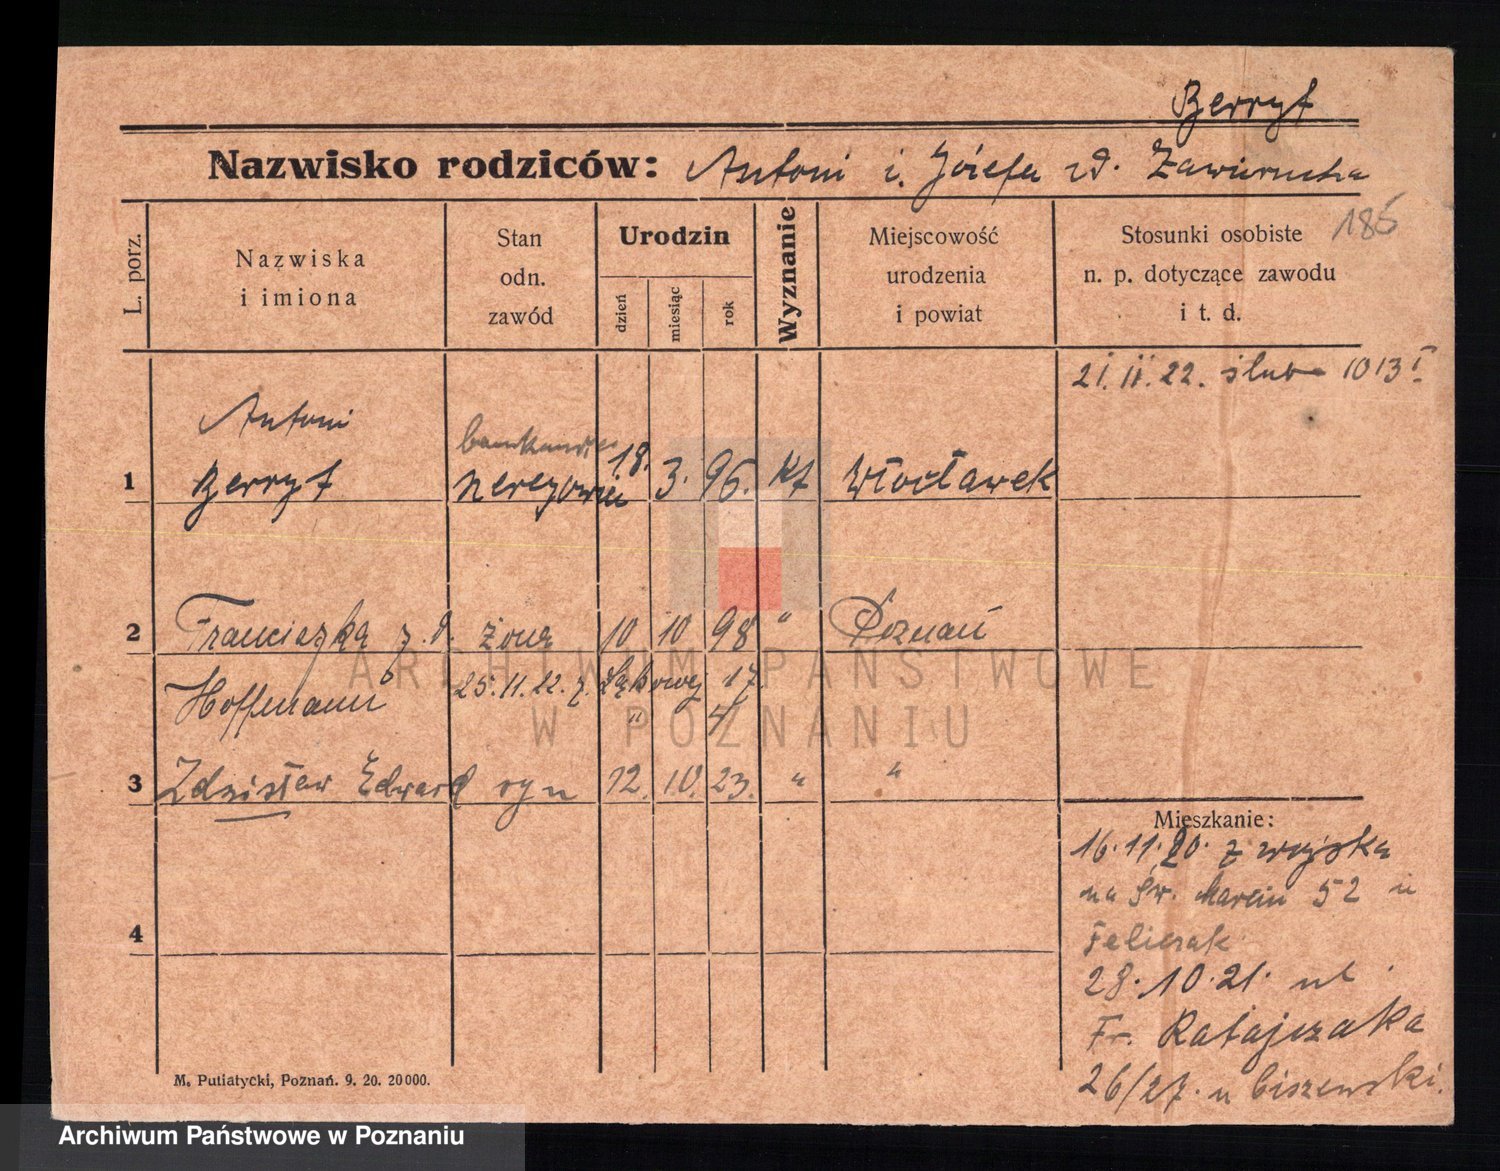 Berryf
Nazwisko rodziców: Antoni i. Józefa zd. Zawierucha
185
L. porz.
Nazwiska
i imiona
Stan
odn.
zawód
Urodzin
dzień
miesiąc
rok
Wyznanie
Miejscowość
urodzenia
i powiat
Stosunki osobiste
n. p. dotyczące zawodu
i t. d.
21.11.22. ślub 1013 I
Antoni
1 Berryf 18. 3. 96. kt Włocławek
2 Franciszka z. d. żona 10 10 98 " Poznań
Hoffmann 25.11.22. z. Łąkowej 17.
" 4
3 Zdzisław Edward syn 12. 10. 23. " "
4
Mieszkanie:
16.11.20. z wojska
na Św. Marcin 52 u
Felicsak
28.10.21. ul
Fr. Ratajczaka
26/27. u Ciszewski.
M. Putiatycki, Poznań. 9. 20. 20000.
ARCHIWUM PAŃSTWOWE
W POZNANIU
Archiwum Państwowe w Poznaniu